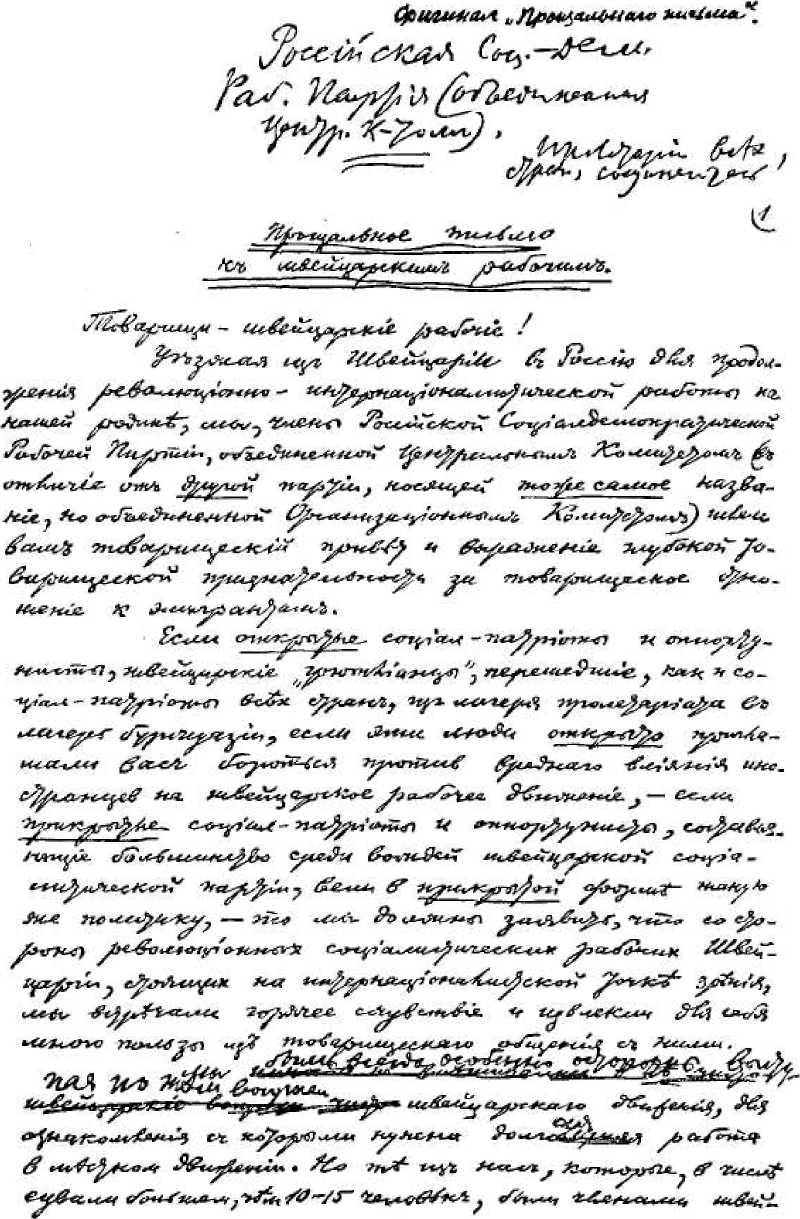 Оригинал „Прощальнаго письма“.
Россійская Соц.-Дем.
Раб. Партія (объединенная
Центр. К-томъ).
Пролетаріи всѣх
стран, соединяйтесь!
1
Прощальное письмо
къ швейцарскимъ рабочимъ.
Товарищи - швейцарскіе рабочіе!
Уѣзжая из Швейцаріи в Россію для продол-
женія революціонно-интернаціоналистической работы на
нашей родинѣ, мы, члены Россійской Соціалдемократической
Рабочей Партіи, объединенной Центральнымъ Комитетомъ (въ
отличіе отъ другой партіи, носящей тоже самое назва-
ніе, но объединенной Организаціоннымъ Комитетомъ) шлем
вамъ товарищескій привѣт и выраженіе глубокой то-
варищеской признательности за товарищеское отно-
шеніе к эмигрантамъ.
Если открытые соціал-патріоты и оппорту-
нисты, швейцарскіе „грютліанцы“, перешедшіе, как и со-
ціал-патріоты всѣх стран, из лагеря пролетаріата въ
лагерь буржуазіи, если эти люди открыто пригла-
шали васъ бороться против вреднаго вліянія ино-
странцев на швейцарское рабочее движеніе, - если
прикрытые соціал-патріоты и оппортунисты, составля-
ющіе большинство среди вождей швейцарской соціа-
листической партіи, вели в прикрытой формѣ такую
же политику, - то мы должны заявить, что со сто-
роны революціонных соціалистических рабочих Швей-
царіи, стоящих на интернаціоналистской точкѣ зрѣнія,
мы встрѣчали горячее сочувствіе и извлекли для себя
много пользы изъ товарищескаго общенія с ними.
Мы были всегда особенно осторожны, высту-
пая по тѣм вопросам
швейцарскаго движенія, для
ознакомленія с которыми нужна долгая работа
в мѣстном движеніи. Но тѣ из нас, которые, в числѣ
едва ли большем, чѣм 10-15 человѣкъ, были членами швей-